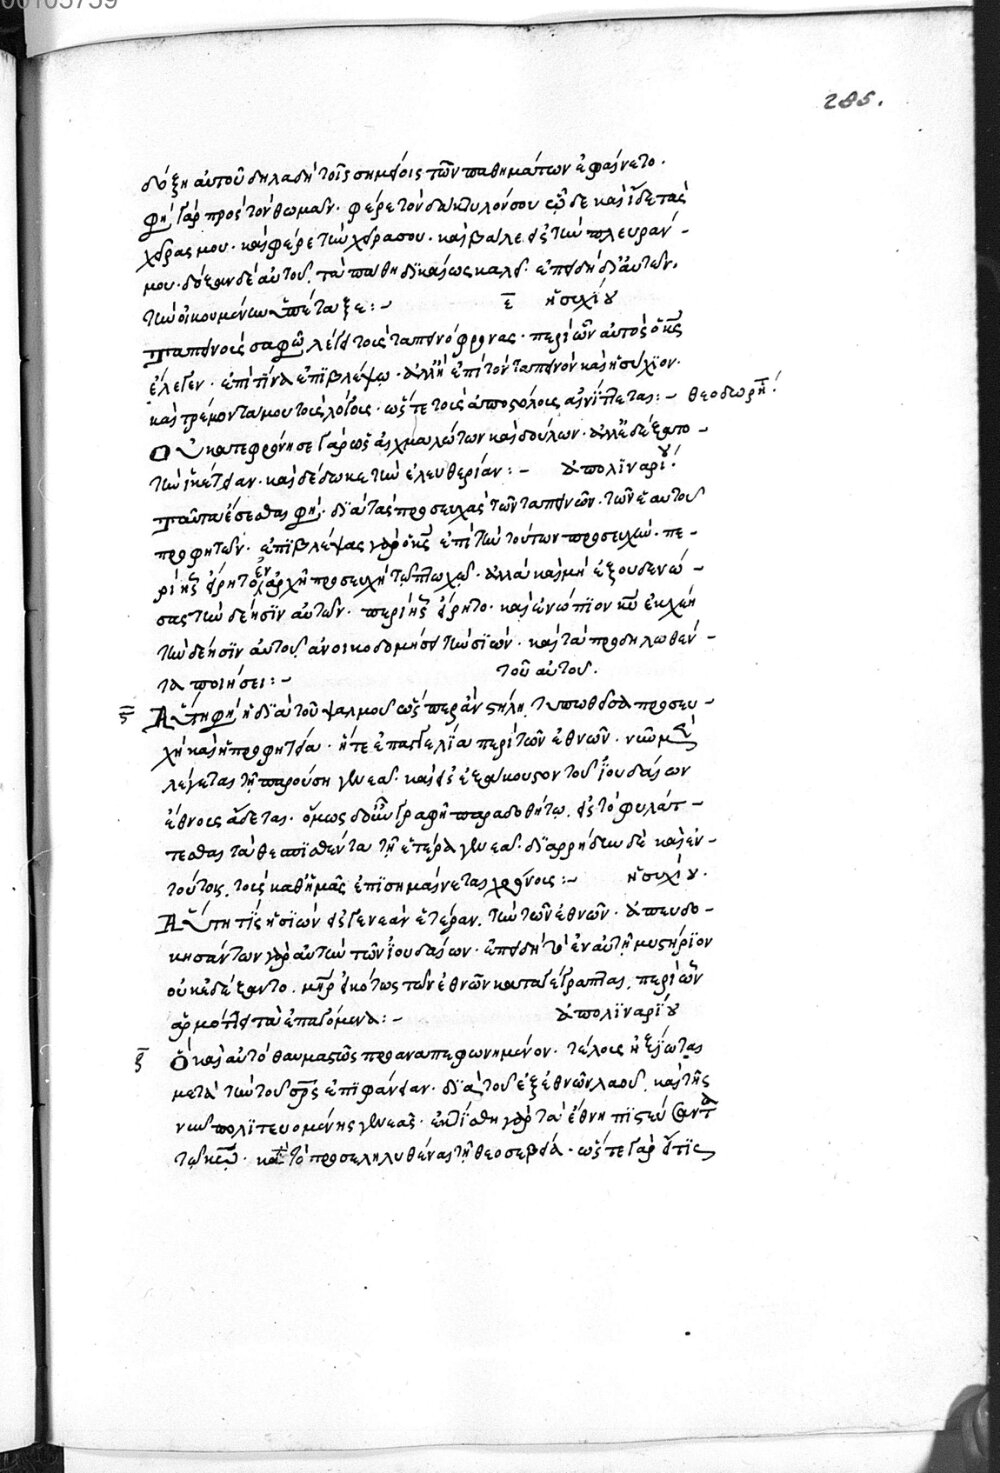 00103759
285.
δόξη αὐτοῦ δηλαδὴ τοῖς σημείοις τῶν παθημάτων ἐφαίνετο.
φησὶ γὰρ πρὸς τὸν θωμᾶν. φέρε τὸν δάκτυλόν σου ὧδε καὶ ἴδε τὰς
χεῖράς μου. καὶ φέρε τὴν χεῖρα σου. καὶ βάλε εἰς τὴν πλευράν-
μου. δόξαν δὲ αὐτοῦ τὰ πάθη δικαίως καλεῖ. ἐπειδὴ δι' αὐτῶν.
τὴν οἰκουμένην ὑπέταξε :- ε̄ ἡσυχίου
ταπεινοὺς λέγει τοὺς ταπεινόφρονας. περὶ ὧν αὐτὸς ὁ κς
ἔλεγεν. ἐπὶ τίνα ἐπιβλέψω. ἀλλ' ἢ ἐπὶ τὸν ταπεινὸν καὶ ἡσύχιον.
καὶ τρέμοντα μου τοὺς λόγους. ὥστε τοὺς ἀποστόλους αἰνίττεται :- θεοδωρήτ
Οὐ κατεφρόνησε γὰρ ὡς αἰχμαλώτων καὶ δούλων. ἀλλ' ἐδέξατο-
τὴν ἱκετείαν. καὶ δέδωκε τὴν ἐλευθερίαν :- ἀπολιναρίου
Ταῦτα ἔσεσθαι φησὶ. διὰ τὰς προσευχὰς τῶν ταπεινῶν. τῶν ἑαυτοῦ
προφητῶν. ἐπιβλέψας γὰρ ὁ κς ἐπὶ τὴν τούτων προσευχὴν. πε-
ρὶ ἧς εἴρητο ἐν ἀρχῇ προσευχὴ τῷ πτωχῷ. ἀλλὰ καὶ μὴ ἐξουδενώ-
σας τὴν δέησιν αὐτῶν. περὶ ἧς εἴρητο. καὶ ἐνώπιον κυ ἐκχέῃ
τὴν δέησιν αὐτοῦ ἀνοικοδομήσει τὴν σιών. καὶ τὰ προδηλωθέν-
τα ποιήσει :- τοῦ αὐτοῦ.
ς̄ Αὕτη φησὶ ἡ διὰ τοῦ ψαλμοῦ ὥσπερ ἂν στήλη τυπωθεῖσα προσευ-
χὴ καὶ ἡ προφητεία. ἥτε ἐπαγγελία περὶ τῶν ἐθνῶν. νῦν μὲν
λέγεται τῇ παρούσῃ γενεᾷ. καὶ εἰς ἐξάκουστον τοῦ ἰουδαίων
ἔθνους ᾄδεται. ὅμως γραφῇ παραδοθήτω εἰς τὸ φυλάτ-
τεσθαι τὰ θεσπισθέντα τῇ ἑτέρᾳ γενεᾷ. διαρρήδην δὲ καὶ ἐν-
τούτοις τοὺς καθ' ἡμᾶς ἐπισημαίνεται χρόνους :- ἡσυχίου.
Αὕτη τίς ἡ σιὼν εἰς γενεὰν ἑτέραν. τὴν τῶν ἐθνῶν. ἀπευδο-
κησάντων γὰρ αὐτὴν τῶν ἰουδαίων. ἐπειδὴ τὸ ἐν αὐτῇ μυστήριον
οὐκ ἐδέξαντο. εἰκότως τῶν ἐθνῶν καταγέγραπται, περὶ ὧν
ἁρμόττει τὰ ἐπαγόμενα :- ἀπολιναρίου
ζ̄ Ὃ καὶ αὐτὸ θαυμαστῶς προαναπεφώνημένον. τέλους ἠξίωται
μετὰ τὴν τοῦ σρς ἐπιφάνειαν. διὰ τοῦ ἐξ ἐθνῶν λαοῦ. καὶ τῆς
νῦν πολιτευομένης γενεᾶς. ἐκτίσθη γὰρ τὰ ἔθνη πιστεύσαντα
τῷ κω. κατὰ τὸ προσεληλυθέναι τῇ θεοσεβείᾳ. ὥστε γὰρ